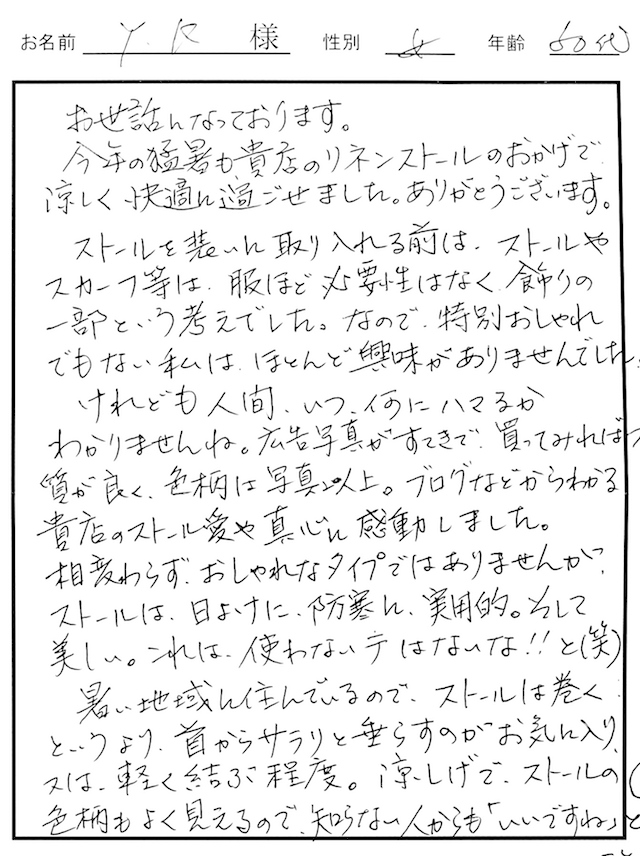 お名前 Y.K 様 性別 女 年齢 50代
お世話になっております。
今年の猛暑も貴店のリネンストールのおかげで
涼しく快適に過ごせました。ありがとうございます。
ストールを装いに取り入れる前は、ストールや
スカーフ等は、服ほど必要性はなく、飾りの
一部という考えでした。なので、特別おしゃれ
でもない私は、ほとんど興味がありませんでした。
けれども人間、いつ、何にハマるか
わかりませんね。広告写真がすてきで、買ってみれば
質が良く、色柄は写真以上。ブログなどからわかる
貴店のストール愛や真心に感動しました。
相変わらず、おしゃれなタイプではありませんが、
ストールは、日よけに、防寒に、実用的。そして
美しい。これは、使わないテはないな!!と(笑)
暑い地域に住んでいるので、ストールは巻く
というより、首からサラリと垂らすのがお気に入り
又は、軽く結ぶ程度。涼しげで、ストールの
色柄もよく見えるので、知らない人からも「いいですね」と